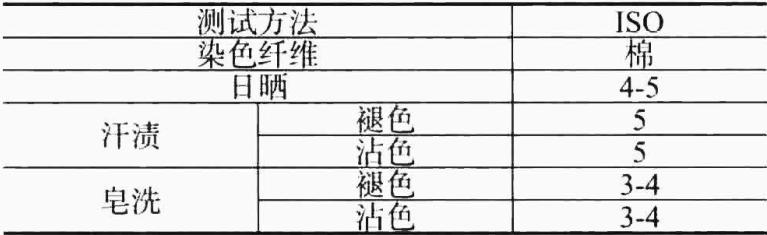 测试方法 ISO
染色纤维 棉
日晒 4-5
汗渍 褪色 5
沾色 5
皂洗 褪色 3-4
沾色 3-4